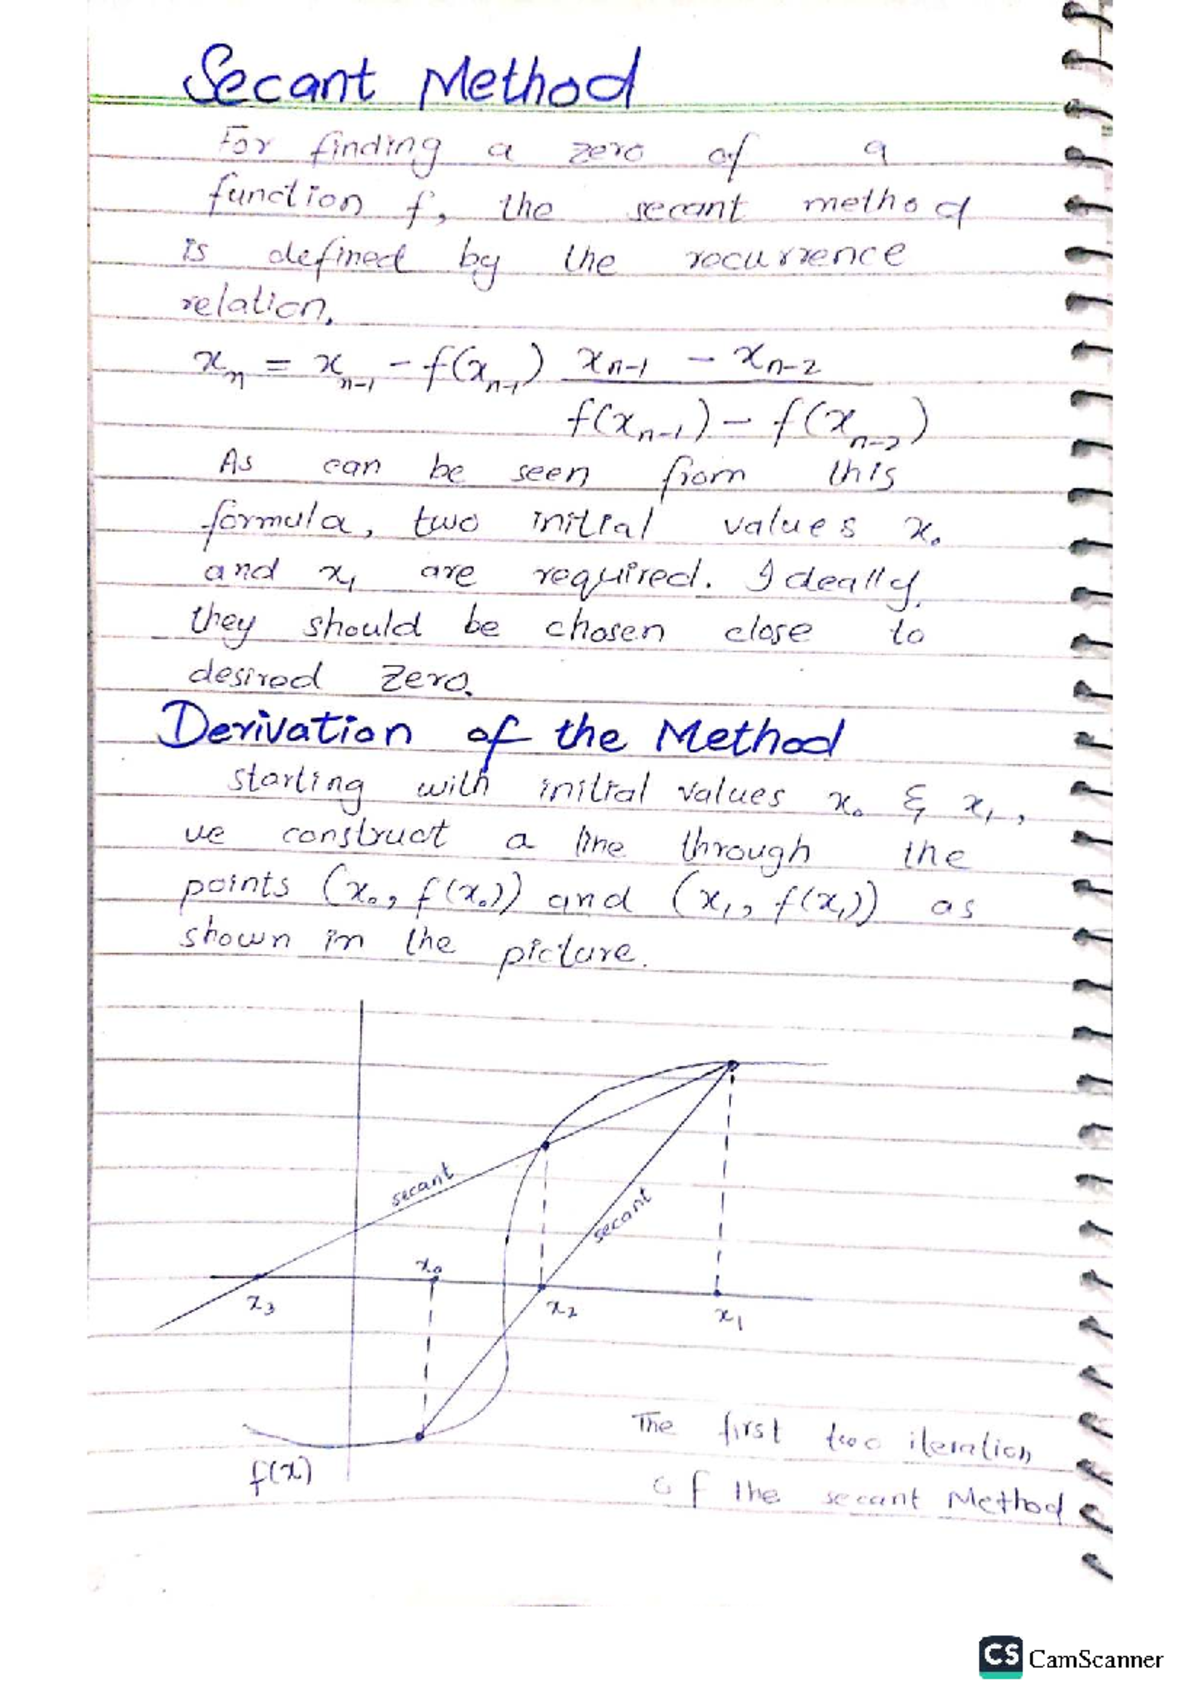 Secant Method
For finding a zero of a
function f, the secant method
is defined by the rocurrence
relation.
xₙ = xₙ₋₁ - f(xₙ₋₁) xₙ₋₁ - xₙ₋₂
f(xₙ₋₁) - f(xₙ₋₂)
As can be seen from this
formula, two initial values x₀
and x₁ are required. Ideally,
they should be chosen close to
desired zero.
Derivation of the Method
starting with initial values x₀ & x₁,
we construct a line through the
points (x₀, f(x₀)) and (x₁, f(x₁)) as
shown in the picture.
secant
secant
x₀
x₃
x₂
x₁
f(x)
The first two iteration
of the secant Method
CS CamScanner